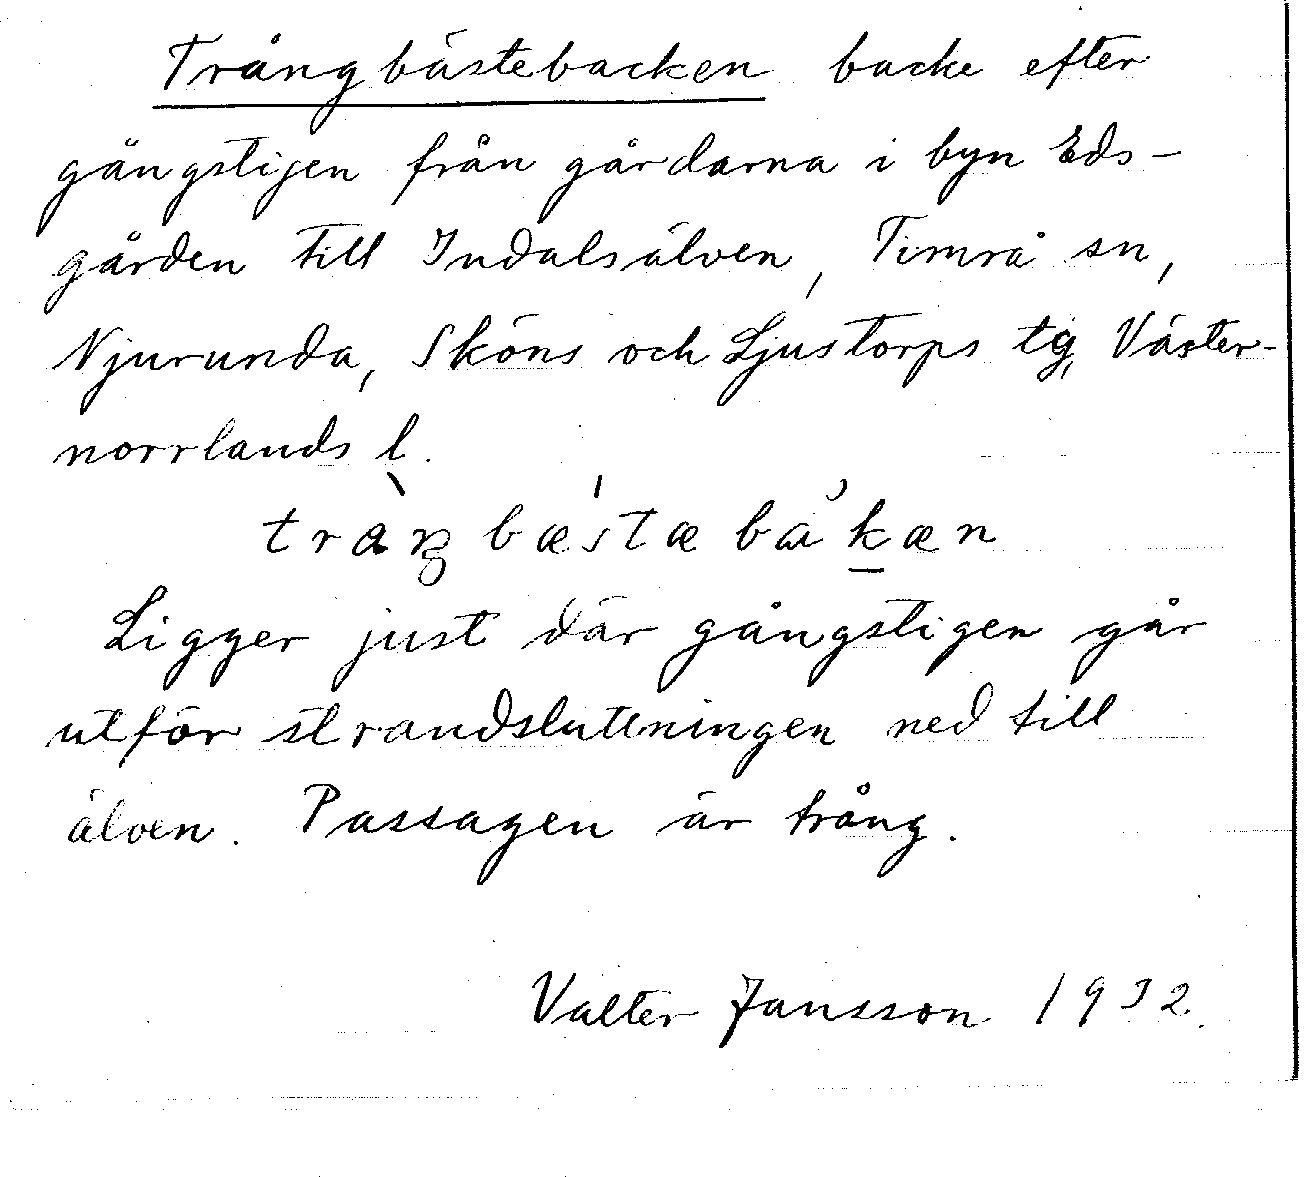 Trångbästebacken backe efter
gångstigen från gårdarna i byn Eds-
gården till Indalsälven, Timrå sn,
Njurunda, Sköns och Ljustorps tg, Väster-
norrlands l.
tràŋbæ´stæbakæn
Ligger just där gångstigen går
utför strandsluttningen ned till
älven. Passagen är trång.
Valter Jansson 1932.